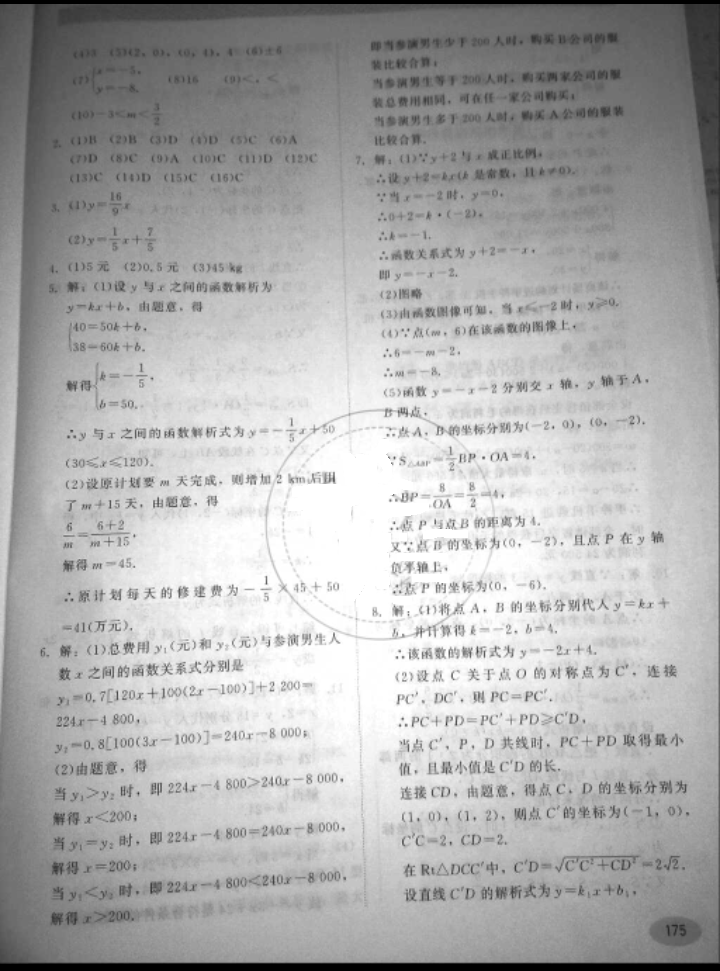 (4)3　(5)(2，0)，(0，4)，4　(6)±6
(7){x=-5，
y=-8.
(8)16　(9)<，<
(10)-3<m<3/2
2. (1)B　(2)B　(3)D　(4)D　(5)C　(6)A
(7)D　(8)C　(9)A　(10)C　(11)D　(12)C
(13)C　(14)D　(15)C　(16)C
3. (1)y=16/9x
(2)y=1/5x+7/5
4. (1)5元　(2)0.5元　(3)45 kg
5. 解：(1)设 y 与 x 之间的函数解析为
y=kx+b，由题意，得
{40=50k+b，
38=60k+b.
解得{k=-1/5，
b=50.
∴y 与 x 之间的函数解析式为 y=-1/5x+50
(30≤x≤120).
(2)设原计划要 m 天完成，则增加 2 km 后用
了 m+15 天，由题意，得
6/m=(6+2)/(m+15)，
解得 m=45.
∴原计划每天的修建费为 -1/5×45+50
=41(万元).
6. 解：(1)总费用 y₁(元)和 y₂(元)与参演男生人
数 x 之间的函数关系式分别是
y₁=0.7[120x+100(2x-100)]+2 200=
224x-4 800，
y₂=0.8[100(3x-100)]=240x-8 000；
(2)由题意，得
当 y₁>y₂ 时，即 224x-4 800>240x-8 000，
解得 x<200；
当 y₁=y₂ 时，即 224x-4 800=240x-8 000，
解得 x=200；
当 y₁<y₂ 时，即 224x-4 800<240x-8 000，
解得 x>200.
即当参演男生少于 200 人时，购买 B 公司的服
装比较合算；
当参演男生等于 200 人时，购买两家公司的服
装总费用相同，可在任一家公司购买；
当参演男生多于 200 人时，购买 A 公司的服装
比较合算.
7. 解：(1)∵y+2 与 x 成正比例，
∴设 y+2=kx(k 是常数，且 k≠0).
∵当 x=-2 时，y=0，
∴0+2=k·(-2)，
∴k=-1.
∴函数关系式为 y+2=-x，
即 y=-x-2.
(2)图略
(3)由函数图像可知，当 x≤-2 时，y≥0.
(4)∵点(m，6)在该函数的图像上，
∴6=-m-2，
∴m=-8.
(5)函数 y=-x-2 分别交 x 轴，y 轴于 A，
B 两点，
∴点 A，B 的坐标分别为(-2，0)，(0，-2).
∵S△ABP=1/2BP·OA=4，
∴BP=8/OA=8/2=4，
∴点 P 与点 B 的距离为 4.
又∵点 B 的坐标为(0，-2)，且点 P 在 y 轴
负半轴上，
∴点 P 的坐标为(0，-6).
8. 解：(1)将点 A，B 的坐标分别代入 y=kx+
b，并计算得 k=-2，b=4.
∴该函数的解析式为 y=-2x+4.
(2)设点 C 关于点 O 的对称点为 C′，连接
PC′，DC′，则 PC=PC′.
∴PC+PD=PC′+PD≥C′D，
当点 C′，P，D 共线时，PC+PD 取得最小
值，且最小值是 C′D 的长.
连接 CD，由题意，得点 C，D 的坐标分别为
(1，0)，(1，2)，则点 C′的坐标为(-1，0)，
C′C=2，CD=2.
在 Rt△DCC′中，C′D=√(C′C²+CD²)=2√2.
设直线 C′D 的解析式为 y=k₁x+b₁，
175